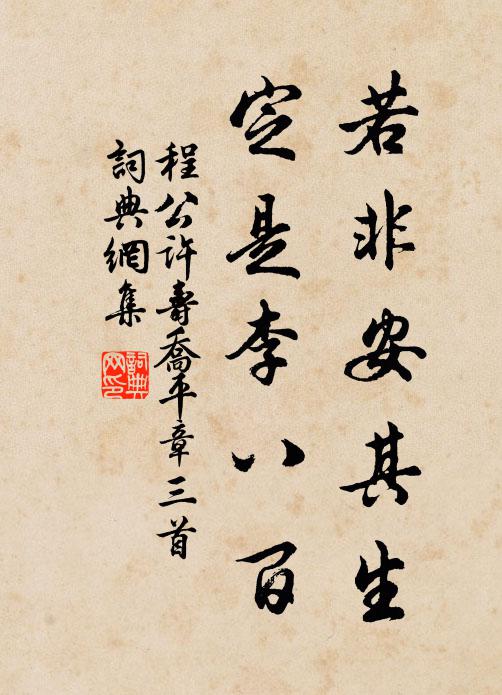 若非安其生
定是李八百
程公許壽喬平章三首
詞典網集
詞典網印